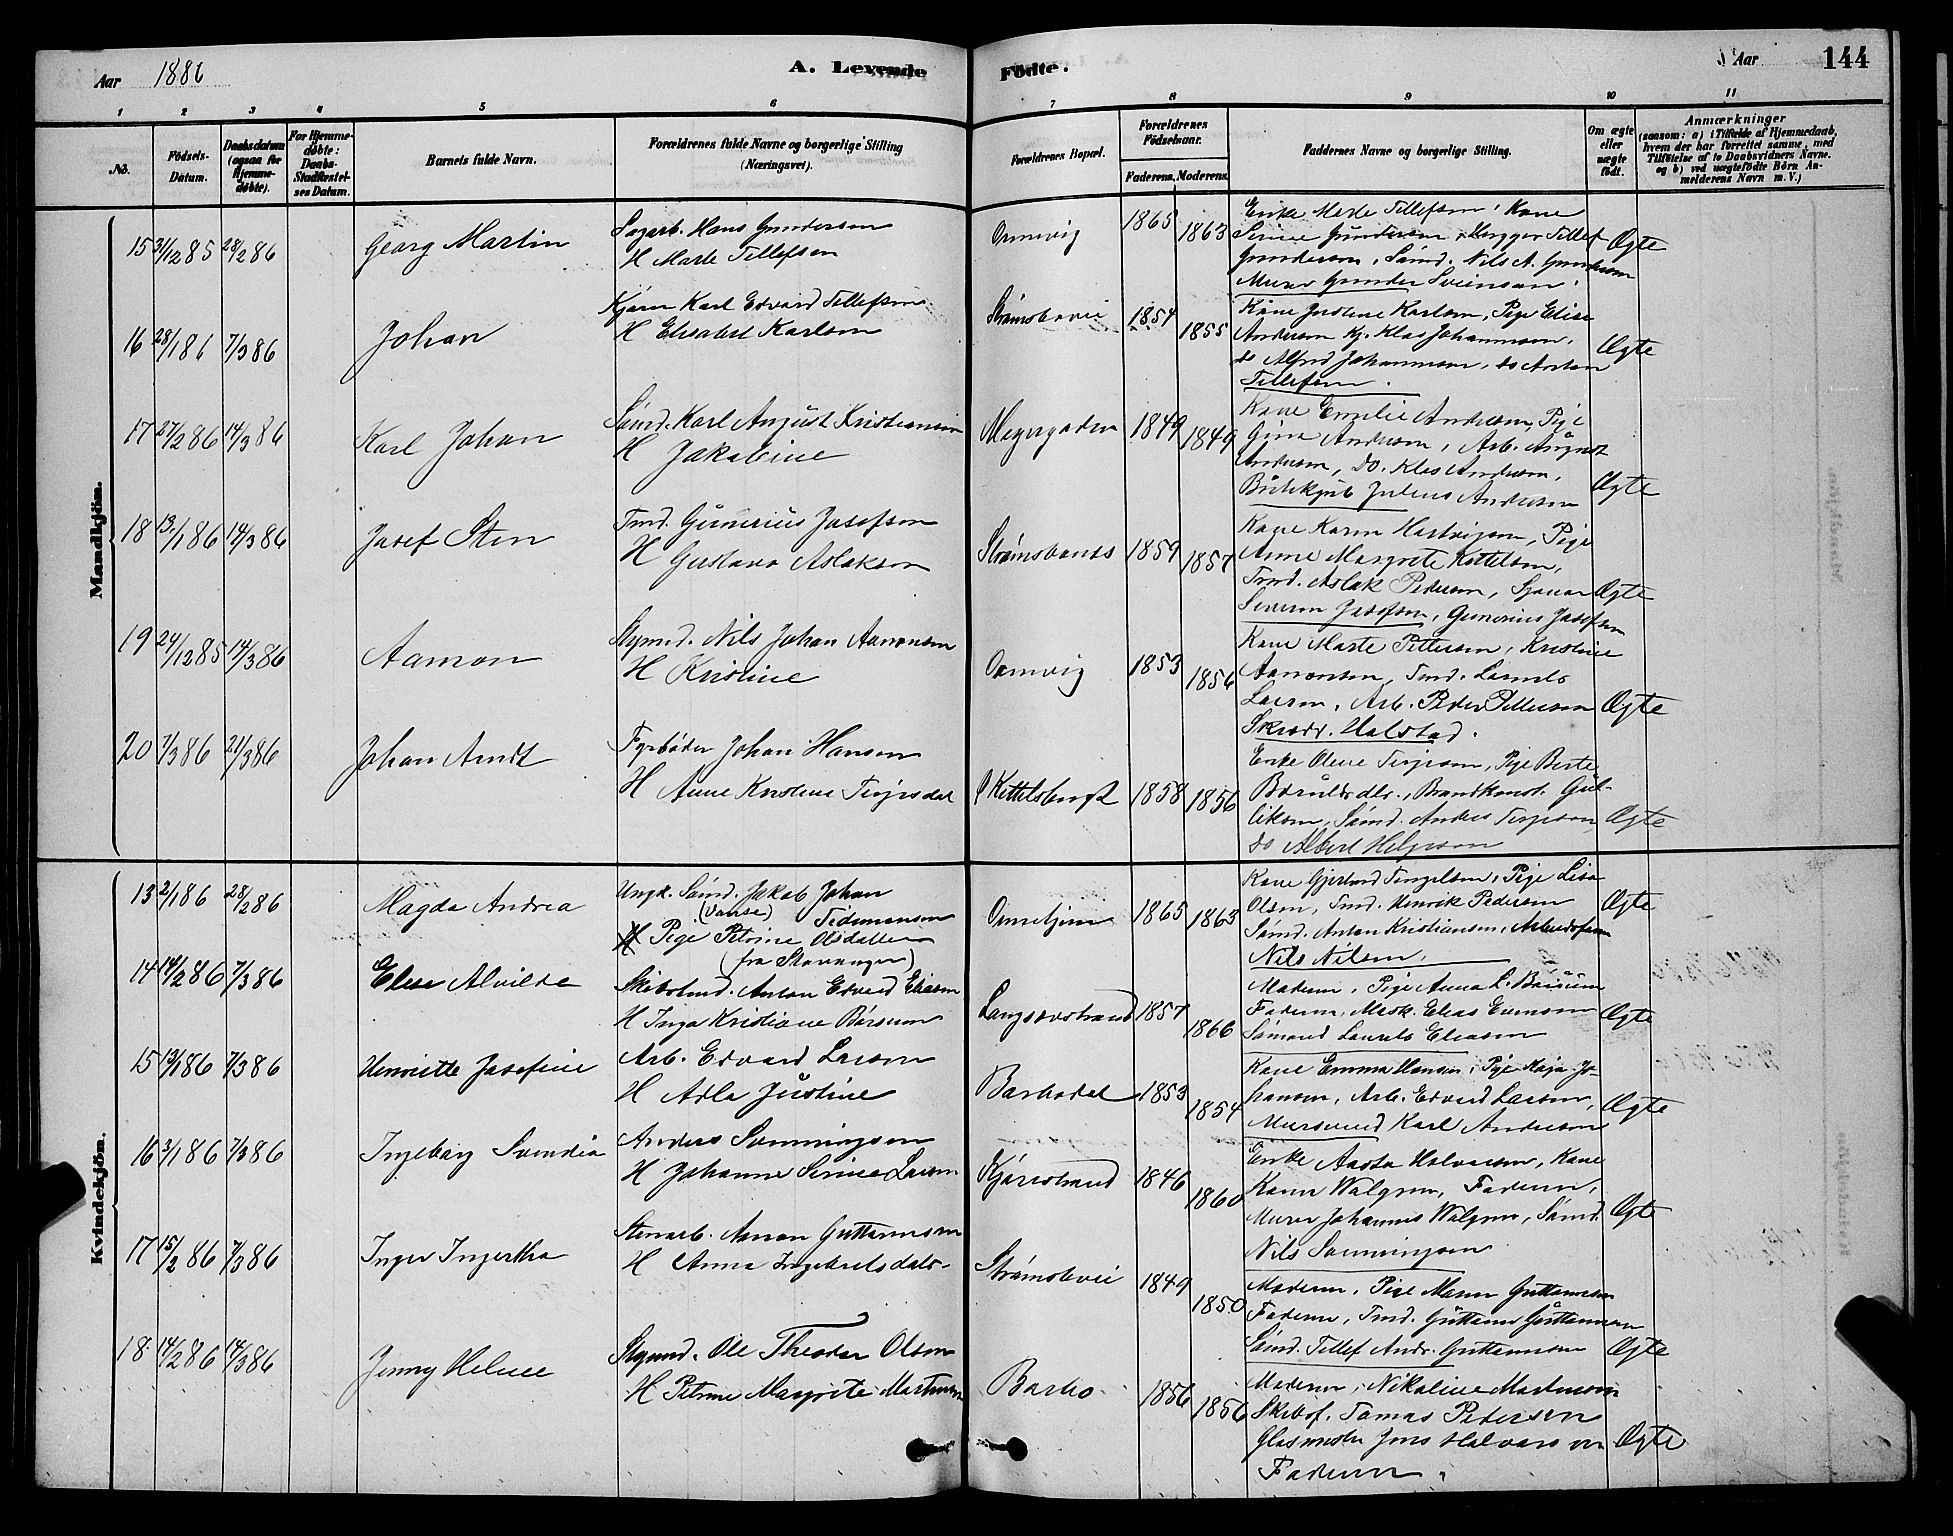 Aar 1886
A. Levende Fødte.
Aar
144
1 2 3 4 5 6 7 8 9 10 11
No.
Fødsels-Datum.
Daabsdatum (ogsaa for Hjemme-døbte).
For Hjemme-døbte: Daabs-Stadfæstel-ses Datum.
Barnets fulde Navn.
Forældrenes fulde Navne og borgerlige Stilling (Næringsvei).
Forældrenes Bopæl.
Forældrenes Fødselsaar.
Faderens. Moderens.
Faddernes Navne og borgerlige Stilling.
Om ægte eller uægte født.
Anmærkninger (saasom: a) i Tilfælde af Hjemmedaab, hvem der har forrettet samme, med Tilføielse af to Daabsvidners Navne. og b) ved uægtefødte Børn An-melderens Navn m. V.)
Mandkjön.
15 31/12 85 28/2 86 Georg Martin
Sagarb. Hans Gundersen
H Marte Tellefsen
1865 1863
Enke Marte Tellefsen, Kone
Gundersen, Sømd. Nils A. Gundersen
Murer Gunder Svensen.
Ægte
16 28/1 86 7/3 86 Johan
Karl Edvard Tellefsen
H Elisabet Karlsen
1854 1855
Kone Karlsen, Pige Elise
Andersen Kj. Klas Johannesen,
do Alfred Johannesen, do Anton
Tellefsen.
Ægte
17 27/2 86 14/3 86 Karl Johan
Sømd. Karl August Kristiansen
H Jakobine
1849 1849
Kone Emilie Andersen, Pige
Gina Andersen, Arb. August
Andersen, do. Klas Andersen,
Julius Andersen
Ægte
18 13/1 86 14/3 86 Josef Sten
Tmd. Gunerius Josefsen
H Gustava Aslaksen
1859 1857
Kone Karen Hartvigsen, Pige
Anne Margrete Kittelsen,
Tmd. Aslak Pedersen,
Severin Josefsen, Gunerius Josefsen
Ægte
19 24/12 85 14/3 86 Aamon
Nils Johan Aanonsen
H Kristine
1853 1856
Kone Marte Pettersen, Kristine
Aanonsen, Tmd. Laurits
Larsen, Arb. Peder Pettersen
Skrædd. Halstad.
Ægte
20 7/3 86 21/3 86 Johan Arndt
Fyrbøder Johan Hansen
H Anne Kristine Terjesdat
1858 1856
Enke Oline Terjesen, Pige Berte
Sømd. Andres Terjesen,
do Albert Helgesen
Ægte
Kvindekjön.
13 2/1 86 28/2 86 Magda Andrea
Ungk. Sømd. Jakob Johan
Tidemansen
H Pige Petrine Olsdatter
(fra Stavanger)
1865 1863
Pige Lisa
Olsen, Tmd. Henrik Pedersen
Sømd. Anton Kristiansen,
Nils Nilsen.
Ægte
14 14/2 86 7/3 86 Elise Alvilde
Anton Edvard Eliesen
H Inga Kristiane Børsum
Langsævstrand 1857 1866
Moderen, Pige Anna L. Børsum
Faderen, Mask. Elias Evensen
Sømand Laurits Eliesen
Ægte
15 13/1 86 7/3 86 Henriette Josefine
Arb. Edvard Larsen
H Adla Justine
Barbodal 1853 1854
Kone Emma Hansen, Pige Maja Jo-
hansen, Arb. Edvard Larsen,
Mursvend Karl Andersen
Ægte
16 3/1 86 7/3 86 Ingeborg Svendia
Anders Sønningsen
H Johanne Serine Larsen
1846 1860
Enke Aasta Halvorsen, Kone
Karen Walgren, Faderen,
Murer Johannes Walgren, Sømd.
Nils Sønningsen
Ægte
17 15/2 86 7/3 86 Inger Ingertha
Stenarb. Aanon Guttormsen
H Anna Ingebretsdatr.
1849 1850
Moderen, Pige Maren Guttormsen
Faderen, Tmd. Guttorm Guttormsen
Sømd. Tellef Andr. Guttormsen
Ægte
18 14/2 86 14/3 86 Jenny Helene
Ole Theodor Olsen
H Petrine Margrete Martinsen
Barbo 1856 1856
Moderen, Nikoline Martinsen
Skibsf. Tomas Petersen
Glasmester Jens Halvorsen
Faderen.
Ægte